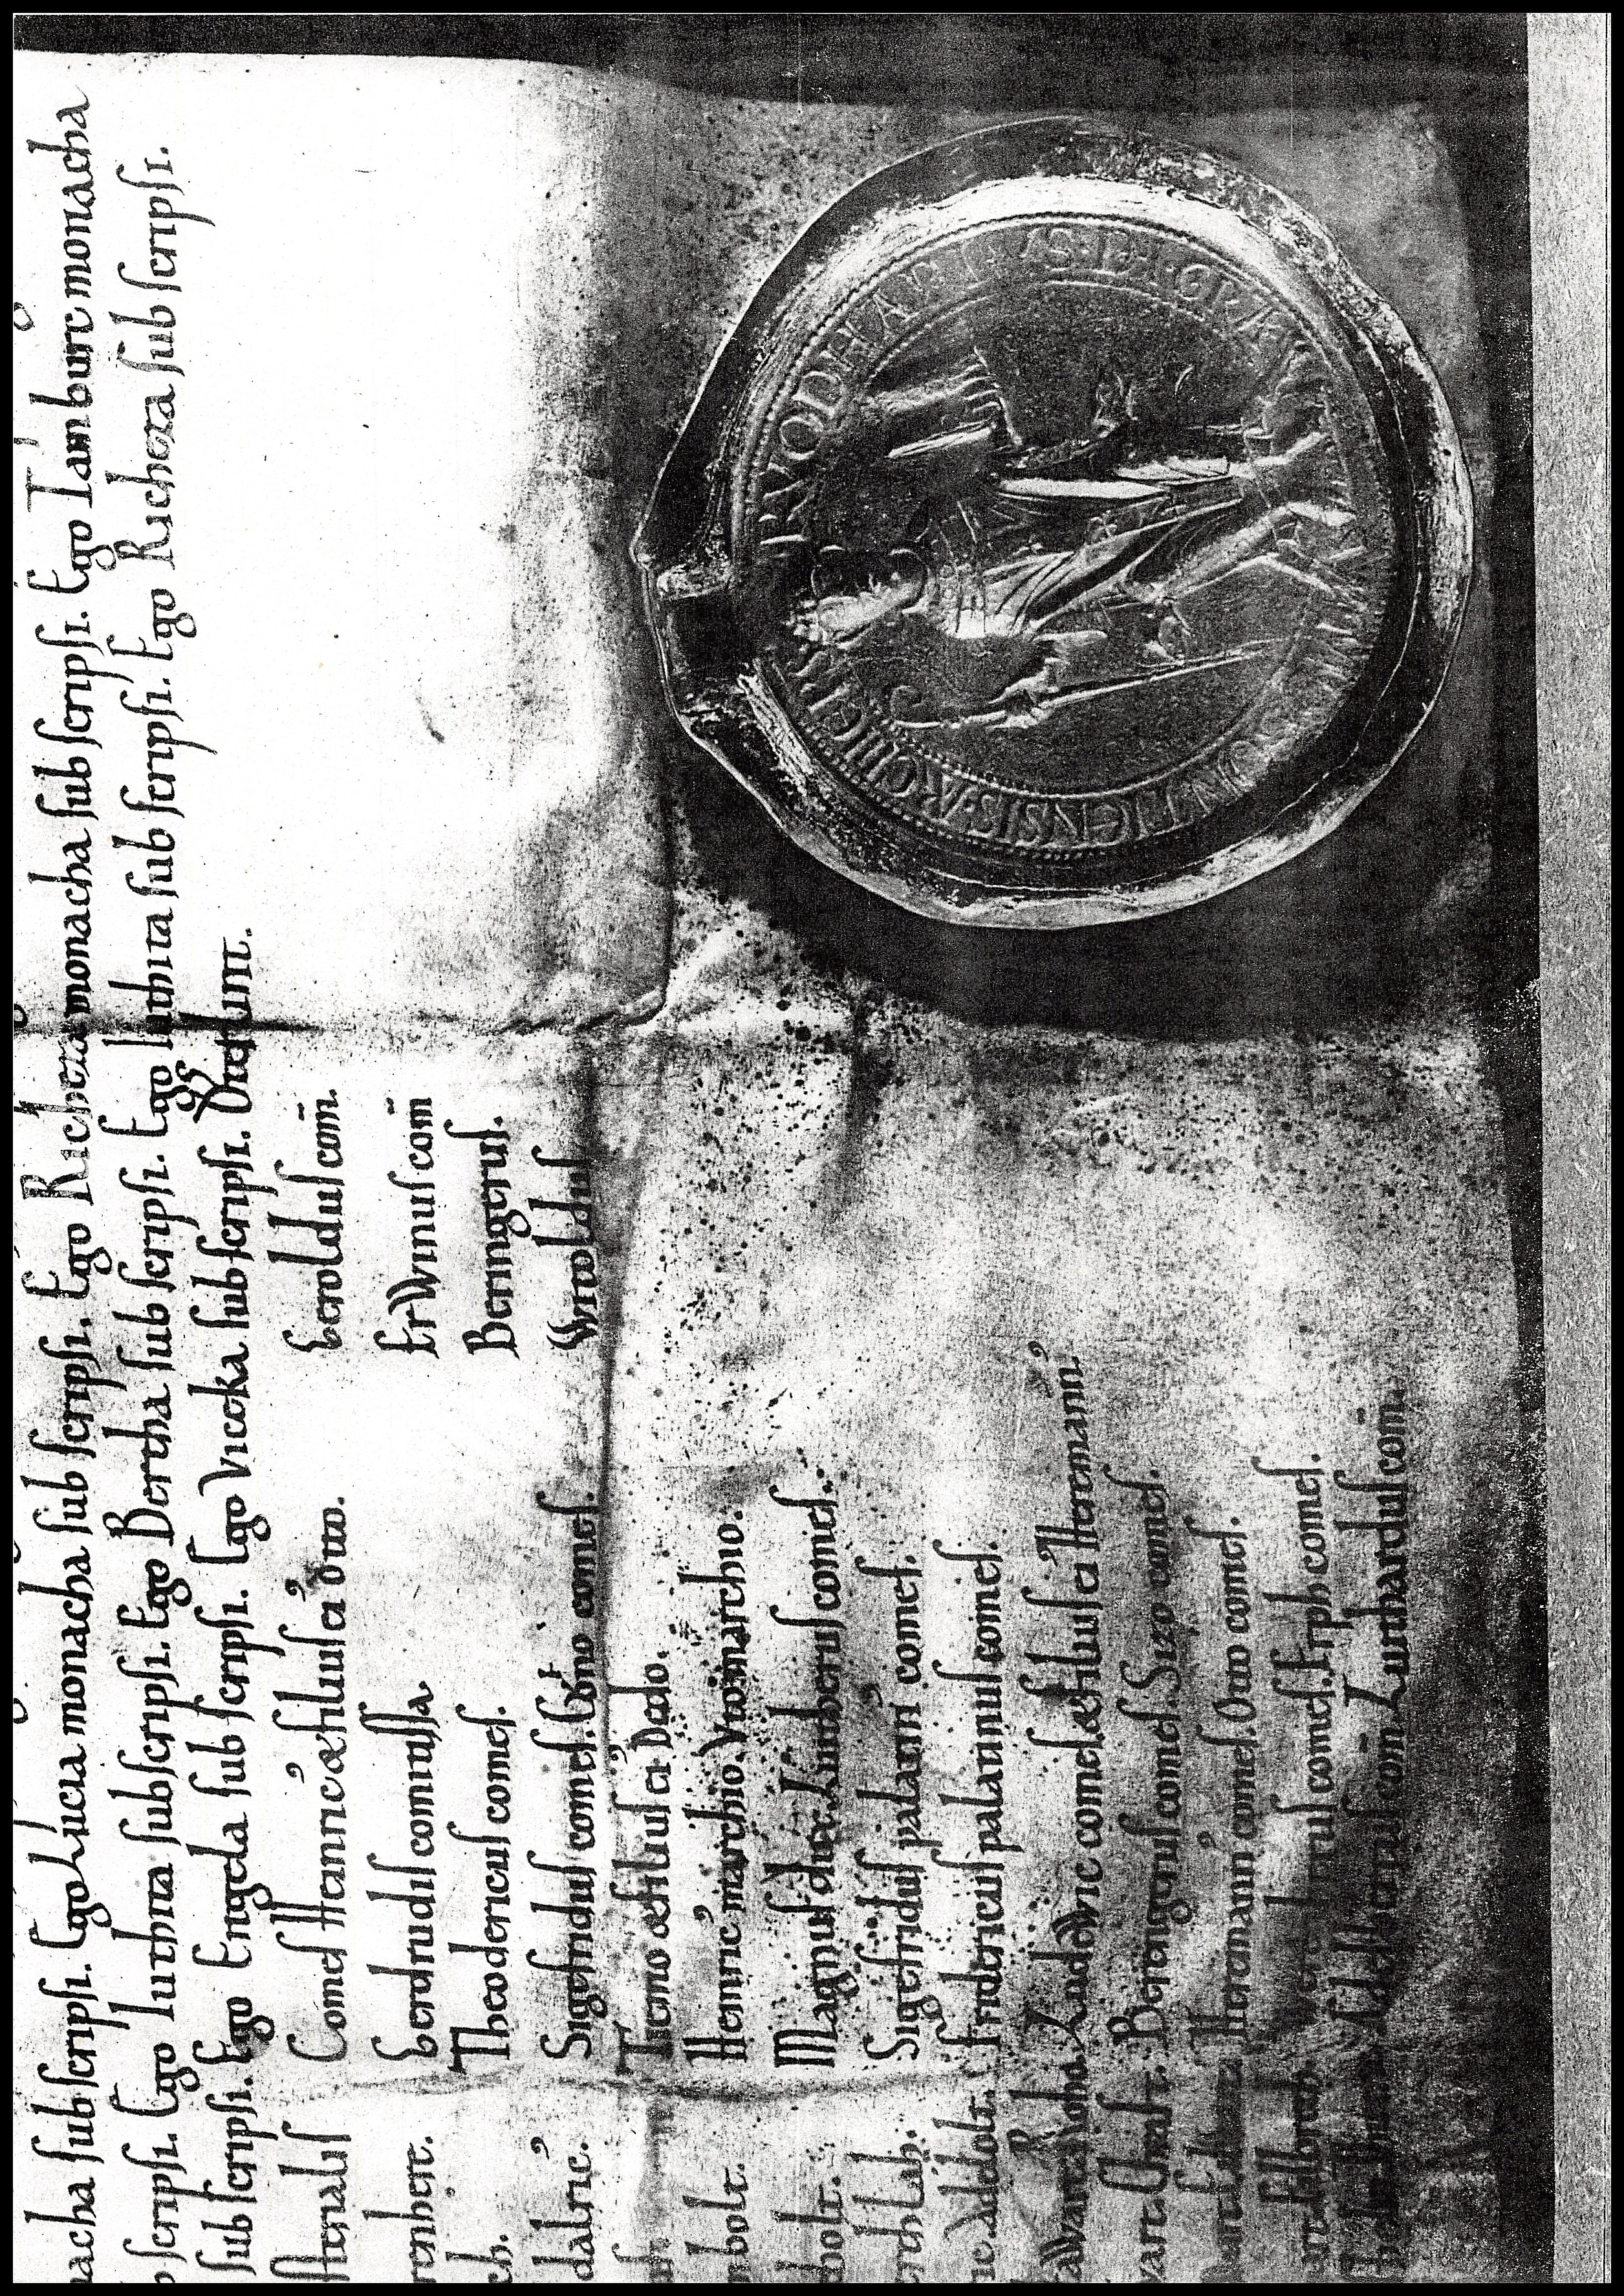 nacha subscripsi. Ego Lucia monacha subscripsi. Ego Richeza monacha subscripsi. Ego Iamburc monacha
scripsi. Ego Iuthita subscripsi. Ego Bertha subscripsi. Ego Iuthita subscripsi. Ego Richeza subscripsi.
subscripsi. Ego Engela subscripsi. Ego Viceka subscripsi.
sterialis Comes Heinric' & filius ei' Otto. Geroldus com̄.
renbert. Gerdrudis comitissa. Erwinus com̄
ch. Theodericus comes. Beringerus.
dalric' Sigefridus comes. Cono comes. Witoldus
Tiemo & filius ei' Dedo.
nbolt. Heinric' marchio. Vto marchio.
bolt. Magnus dux. Liutherus comes.
Sigefridus palatin' comes.
Adelolt. Fridericus palatinus comes.
Ludewic comes & filius ei' Heremann'
wart. Beringerus comes. Sizo comes.
Heremann' comes. Otto comes.
comes. Erph comes.
com̄ Luthardus com̄.
RVODHARDVS · DI · GRA MOGONTIENSIS · ARCHIEPS